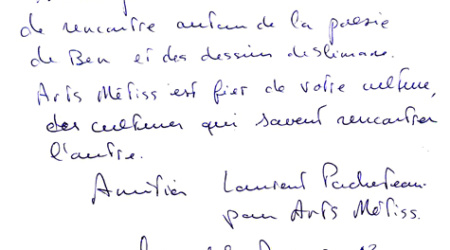 de rencontre autour de la poesie
de Ben et des dessins de Slimane.
Arts Métiss est fier de votre culture,
des cultures qui savent rencontrer
l'autre.
Amitiés Laurent Pacheteau
pour Arts Métiss.